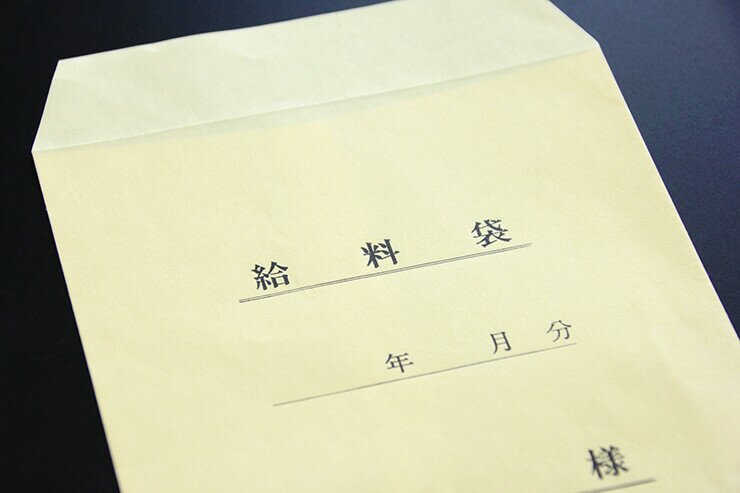 給料袋
年 月分
様